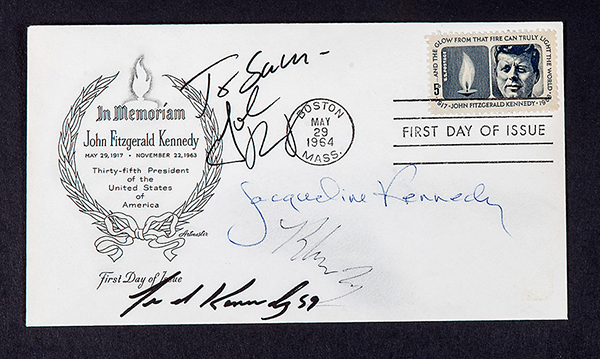 In Memoriam
John Fitzgerald Kennedy
MAY 29, 1917 • NOVEMBER 22, 1963
Thirty-fifth President
of the
United States
of
America
Artmaster
First Day of Issue
To Sam -
BOSTON
MAY
29
1964
MASS.
AND THE GLOW FROM THAT FIRE CAN TRULY LIGHT THE WORLD
U.S. POSTAGE
5¢
JOHN FITZGERALD KENNEDY
FIRST DAY OF ISSUE
Jacqueline Kennedy
Kennedy